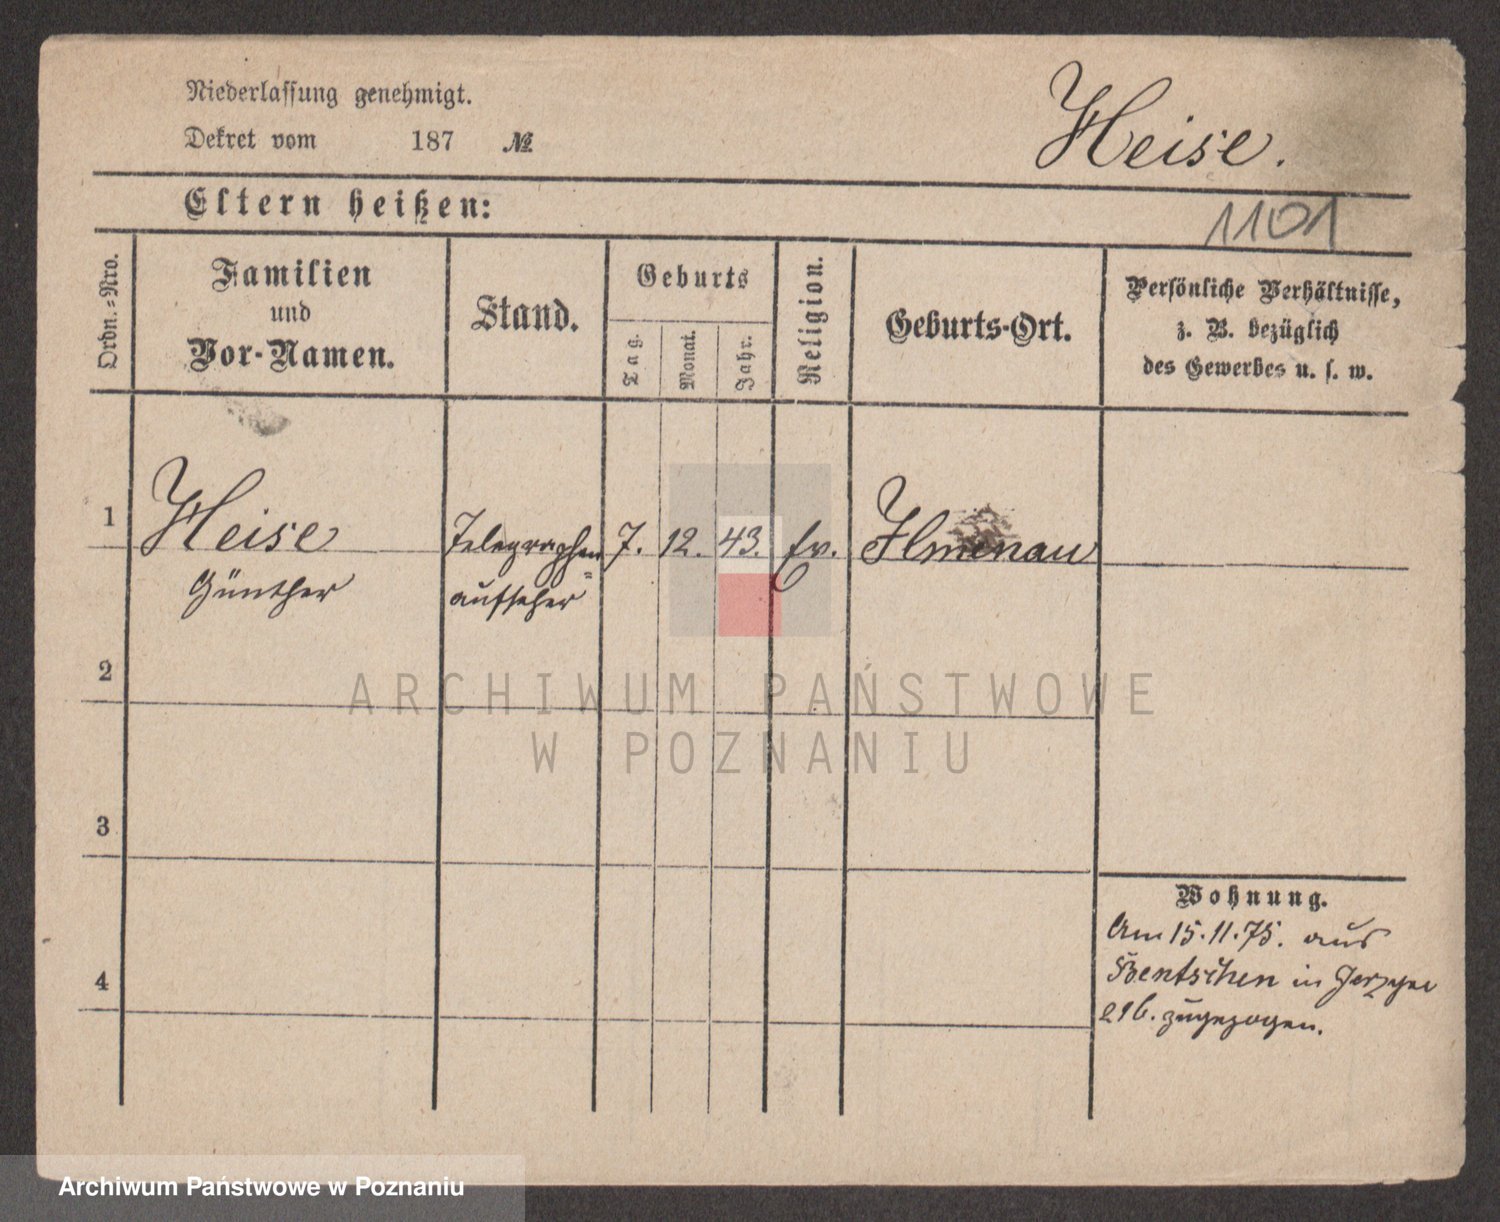 Niederlassung genehmigt.
Dekret vom 187 №
Heise.
Eltern heißen:
1101
Ordn.=Nro.
Familien
und
Vor-Namen.
Stand.
Geburts
Tag.
Monat.
Jahr.
Religion.
Geburts-Ort.
Persönliche Verhältnisse,
z. B. bezüglich
des Gewerbes u. s. w.
1 Heise Telegraphen= 7. 12. 43. Ev. Ilmenau
Günther aufseher
2
ARCHIWUM PAŃSTWOWE
W POZNANIU
3
Wohnung.
Am 15.11.75. aus
4 Bentschen in
zugezogen.
Archiwum Państwowe w Poznaniu